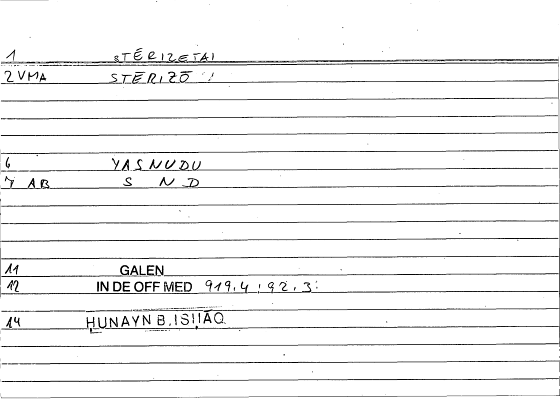 1 STĒRIZETAI
2 VMA STĒRIZŌ
6 YASNUDU
7 AB S N D
11 GALEN
12 IN DE OFF MED 919,4 ; 92,3:
14 HUNAYN B. ISḤĀQ